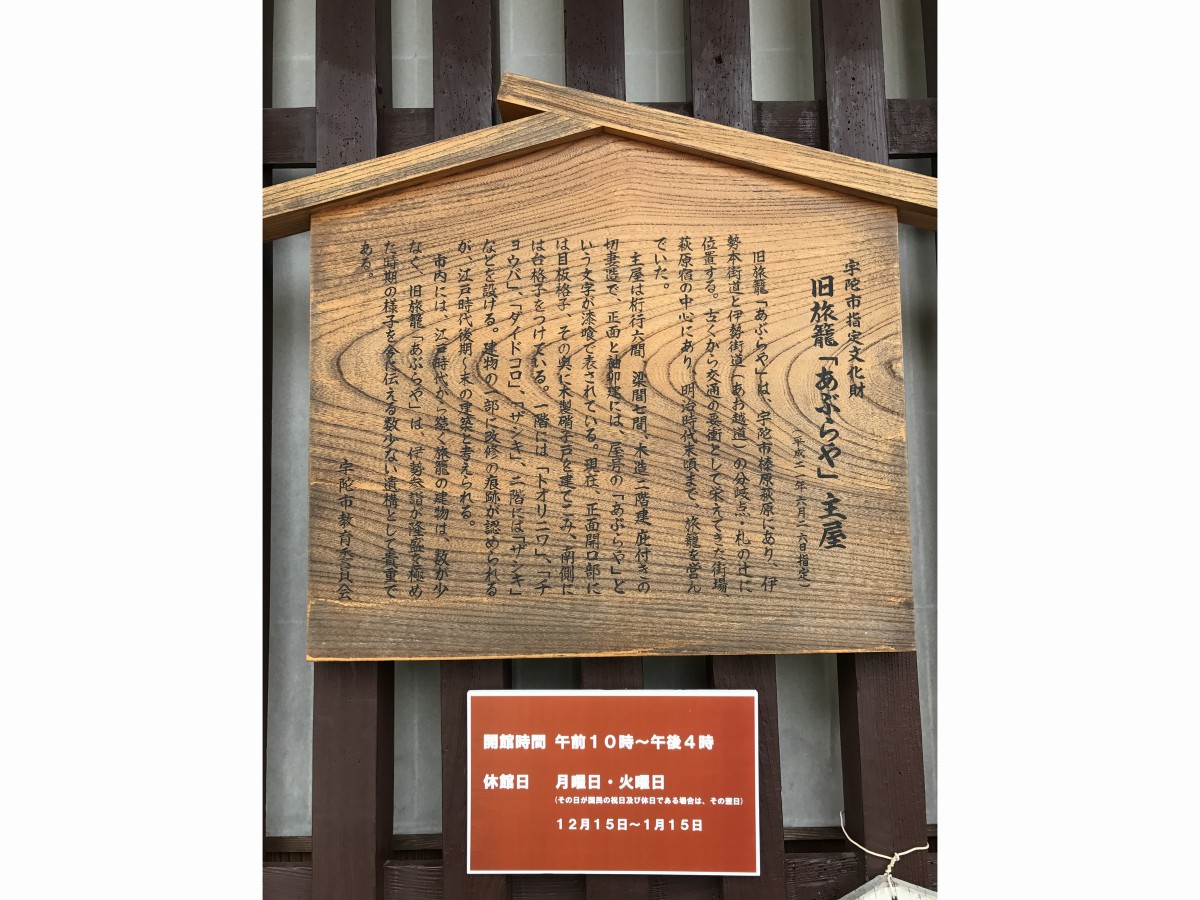 宇陀市指定文化財
旧旅籠「あぶらや」主屋
（平成二一年六月二六日指定）
旧旅籠「あぶらや」は、宇陀市榛原萩原にあり、伊
勢本街道と伊勢街道（あお越道）の分岐点・札の辻に
位置する。古くから交通の要衝として栄えてきた街場
萩原宿の中心にあり、明治時代末頃まで、旅籠を営ん
でいた。
主屋は桁行六間、梁間七間、木造二階建、庇付きの
切妻造で、正面と袖卯建には、屋号の「あぶらや」と
いう文字が漆喰で表されている。現在、正面開口部に
は目板格子、その奥に木製硝子戸を建てこみ、南側に
は台格子をつけている。一階には「トオリニワ」、「チ
ョウバ」、「ダイドコロ」、「ザシキ」、二階には「ザシキ」
などを設ける。建物の一部に改修の痕跡が認められる
が、江戸時代後期～末の建築と考えられる。
市内には、江戸時代から続く旅籠の建物は、数が少
なく、旧旅籠「あぶらや」は、伊勢参詣が隆盛を極め
た時期の様子を今に伝える数少ない遺構として貴重で
ある。
宇陀市教育委員会
開館時間 午前１０時～午後４時
休館日 月曜日・火曜日
（その日が国民の祝日及び休日である場合は、その翌日）
１２月１５日～１月１５日